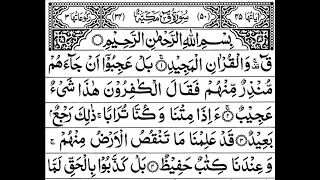 اٰیاتہا ۴۵ (۵۰) سُوْرَۃُ قٓ مَکِّیَّۃٌ (۳۴) رکوعاتہا ۳
بِسْمِ اللّٰهِ الرَّحْمٰنِ الرَّحِیْمِ
قٓ وَالْقُرْاٰنِ الْمَجِیْدِ ۱ بَلْ عَجِبُوْۤا اَنْ جَآءَهُمْ
مُّنْذِرٌ مِّنْهُمْ فَقَالَ الْكٰفِرُوْنَ هٰذَا شَیْءٌ
عَجِیْبٌ ۲ ءَاِذَا مِتْنَا وَ كُنَّا تُرَابًا ۚ ذٰلِكَ رَجْعٌۢ
بَعِیْدٌ ۳ قَدْ عَلِمْنَا مَا تَنْقُصُ الْاَرْضُ مِنْهُمْ ۚ
وَ عِنْدَنَا كِتٰبٌ حَفِیْظٌ ۴ بَلْ كَذَّبُوْا بِالْحَقِّ لَمَّا